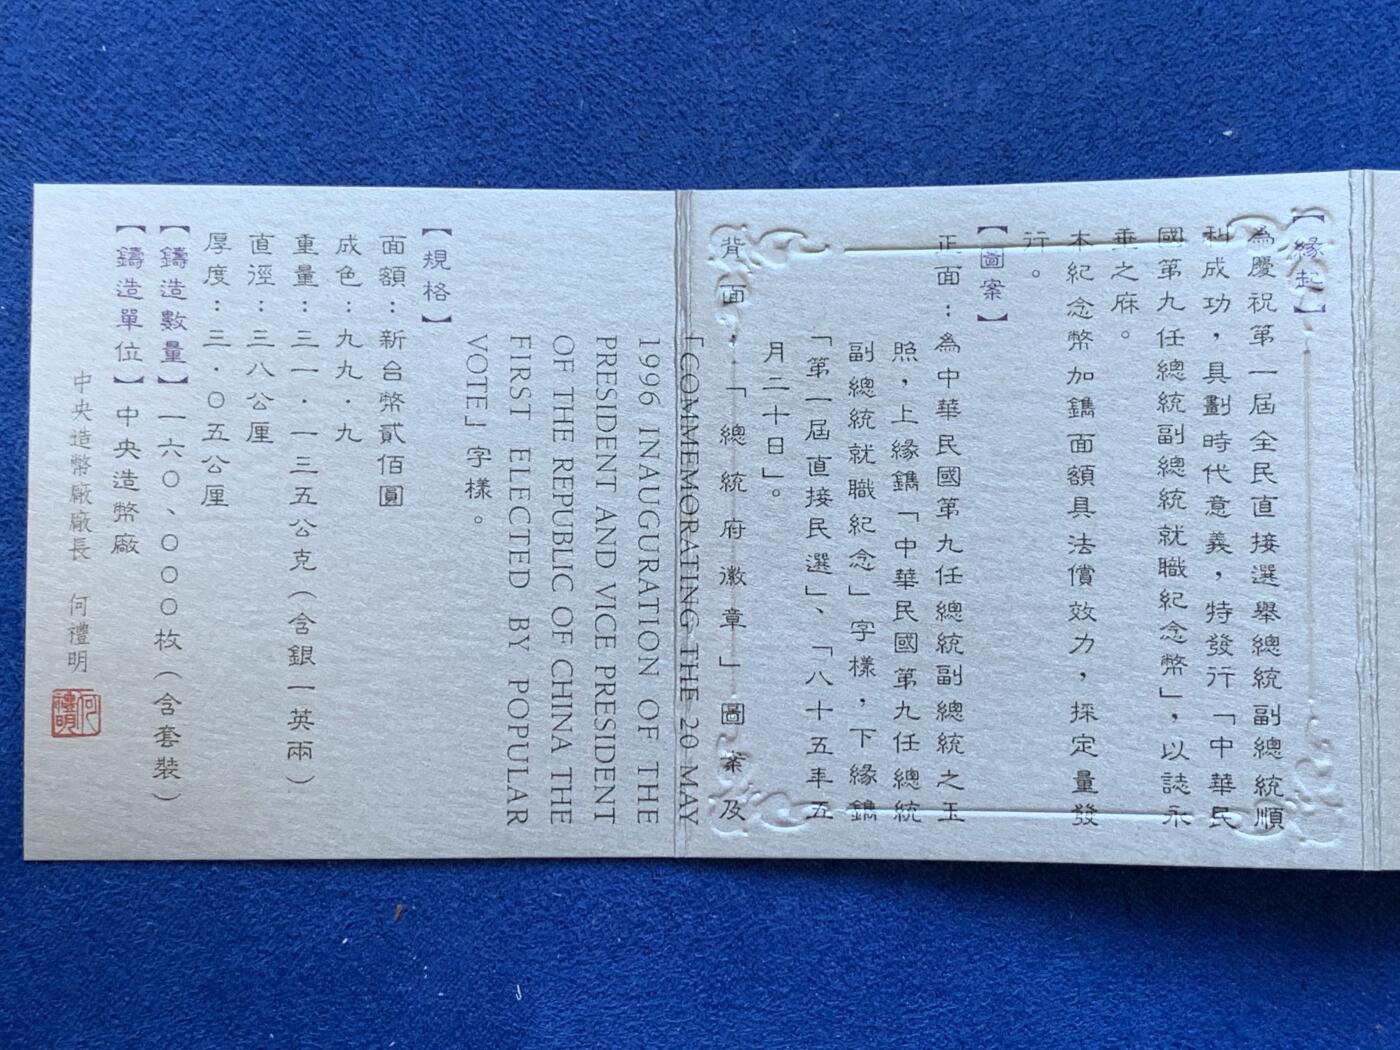 【緣起】
為慶祝第一屆全民直接選舉總統副總統順
利成功，具劃時代意義，特發行「中華民
國第九任總統副總統就職紀念幣」，以誌永
垂之庥。
本紀念幣加鐫面額具法償效力，採定量發
行。
【圖案】
正面：為中華民國第九任總統副總統之玉
照，上緣鐫「中華民國第九任總統
副總統就職紀念」字樣，下緣鐫
「第一屆直接民選」、「八十五年五
月二十日」。
背面：「總統府徽章」圖案及
「COMMEMORATING THE 20 MAY
1996 INAUGURATION OF THE
PRESIDENT AND VICE PRESIDENT
OF THE REPUBLIC OF CHINA THE
FIRST ELECTED BY POPULAR
VOTE」字樣。
【規格】
面額：新台幣貳佰圓
成色：九九．九
重量：三一．一三五公克（含銀一英兩）
直徑：三八公厘
厚度：三．〇五公厘
【鑄造數量】一六〇、〇〇〇枚（含套裝）
【鑄造單位】中央造幣廠
中央造幣廠廠長 何禮明
何禮明